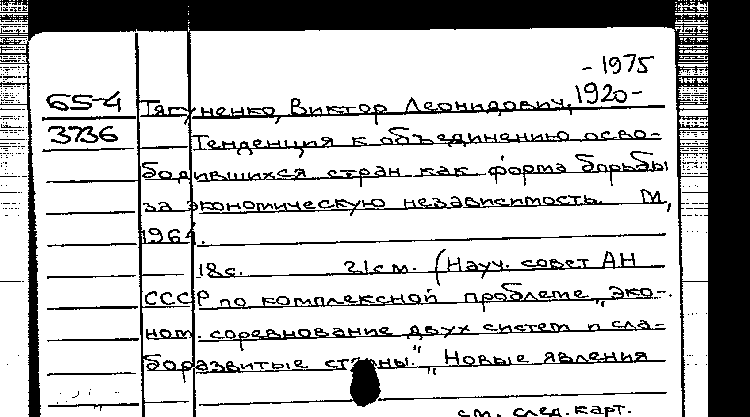 - 1975
65-4 Тягуненко, Виктор Леонидович, 1920-
3736 Тенденция к объединению осво-
бодившихся стран как форма борьбы
за экономическую независимость. М.,
1964.
18с. 21см. (Науч. совет АН
СССР по комплексной проблеме „эко-
ном. соревнование двух систем и сла-
боразвитые страны." „Новые явления
см. след. карт.